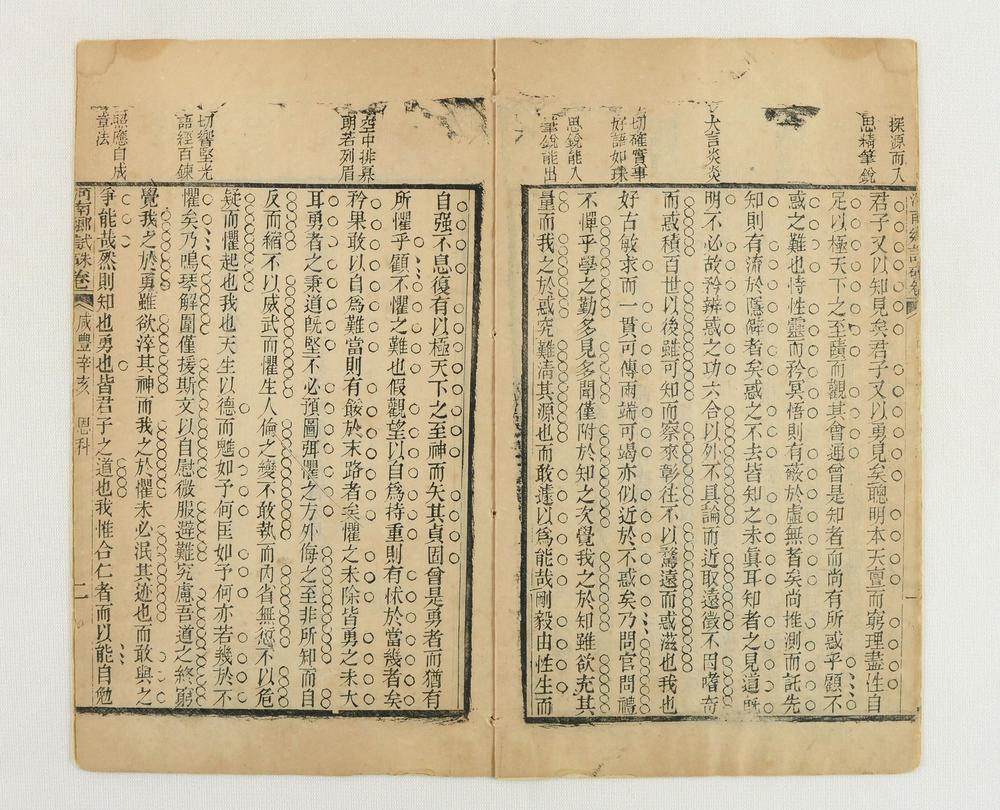 探源而入
思精筆銳
大言炎炎
切確實事
好語如珠
思銳能入
筆銳能出
君子又以知見矣君子又以勇見矣聰明本天亶而窮理盡性自
足以極天下之至賾而觀其會通曾是知者而尚有所惑乎顧不
惑之難也恃性靈而矜冥悟則有蔽於虛無者矣尚推測而託先
知則有流於隱僻者矣惑之不去皆知之未眞耳知者之見道既
明不必故矜辨惑之功六合以外不具論而近取遠徵不因嗜奇
而惑積百世以後雖可知而察來彰往不以驚遠而惑滋也我也
好古敏求而一貫可傳兩端可竭亦似近於不惑矣乃問官問禮
不憚乎學之勤多見多聞僅附於知之次覺我之於知雖欲充其
量而我之於惑究難清其源也而敢遽以爲能哉剛毅由性生而
空中排纂
朗若列眉
切響堅光
語經百鍊
照應自成
章法
自强不息復有以極天下之至神而矢其貞固曾是勇者而猶有
所懼乎顧不懼之難也假觀望以自爲持重則有怵於當幾者矣
矜果敢以自爲難當則有餒於末路者矣懼之未除皆勇之未大
耳勇者之秉道既堅不必預圖弭懼之方外侮之至非所知而自
反而縮不以威武而懼生人倫之變不敢執而內省無愆不以危
疑而懼起也我也天生以德而魋如予何匡如予何亦若幾於不
懼矣乃鳴琴解圍僅援斯文以自慰微服避難究慮吾道之終窮
覺我之於勇雖欲淬其神而我之於懼未必泯其迹也而敢與之
爭能哉然則知也勇也皆君子之道也我惟合仁者而以能自勉
河南鄉試硃卷 咸豐辛亥 恩科 二